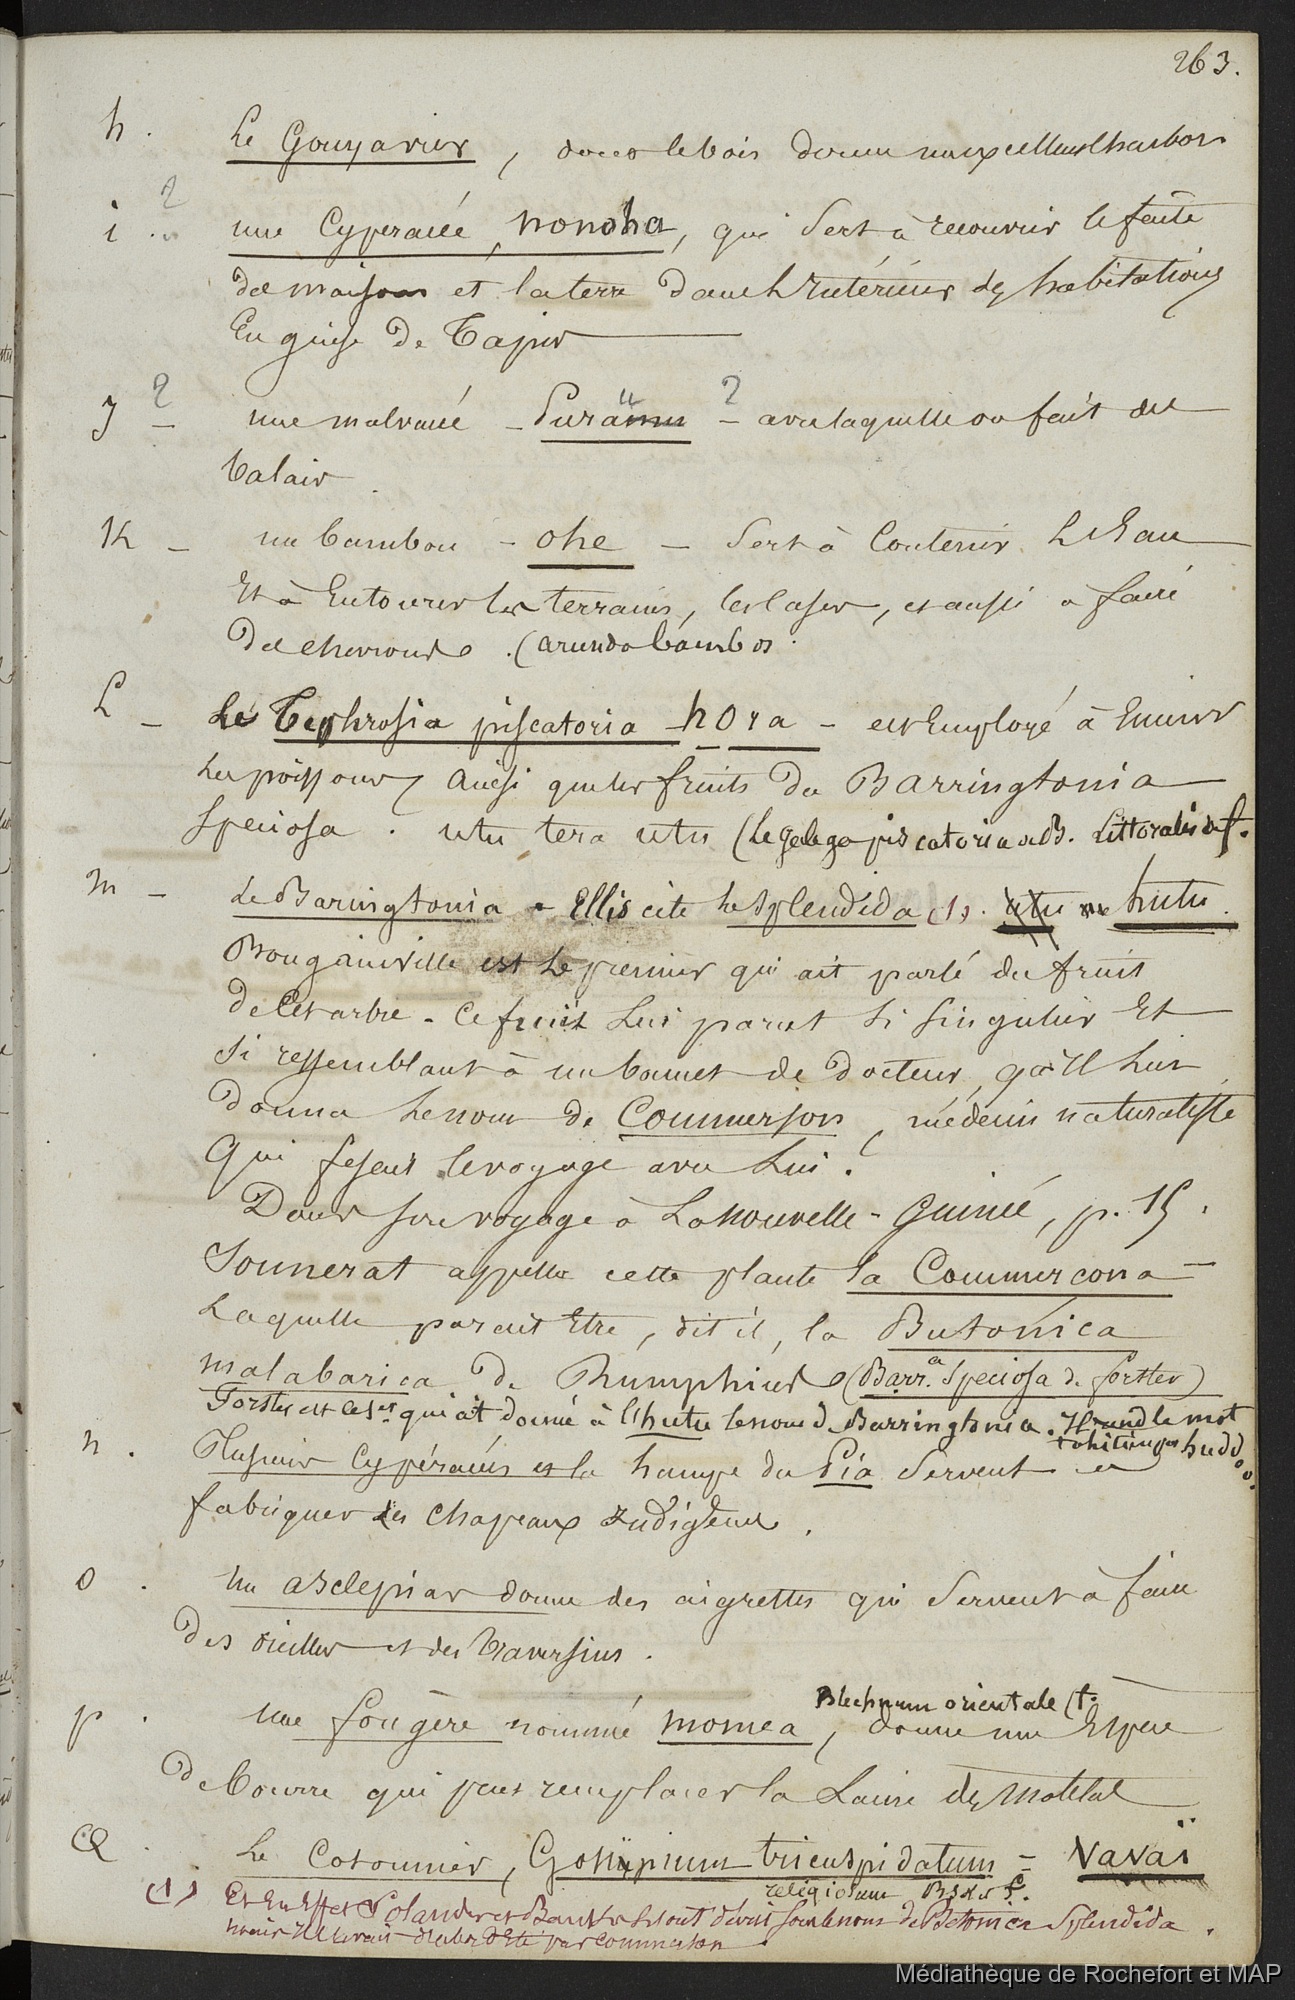 263.
h. Le Gouyavier, dont le bois donne un excellent charbon
i ? une Cyperacée, nonoha, qui sert à recouvrir le faîte
des maisons et la terre dans l'intérieur des habitations
En guise de Tapis
J ? une malvacée - Purau ? - avec laquelle on fait des
balais
K - un bambou - ohe - sert à Contenir L'Eau
Et à Entourer les terrains, les cases, et aussi à faire
des chevrons. (arundo bambos.
L - Le Tephrosia piscatoria - hora - est Employé à Enivrer
Les poissons, ainsi que les fruits du Barringtonia
Speciosa. utu tera utu (le galega piscatoria de B. Littoralis de f.
m - Le Baringtonia - Ellis cite le Splendida (1). utu hutu.
Bougainville est le premier qui ait parlé du fruit
de Cet arbre. Ce fruit Lui parut si singulier Et
si ressemblant à un bonnet de docteur, qu'Il Lui
donna Le nom de Commerson, médecin naturaliste
Qui fesait le voyage avec Lui.
Dans son voyage à La nouvelle-Guinée, p. 15.
Sonnerat appelle cette plante la Commercona
Laquelle parait Etre, dit il, la Butonica
malabarica de Rumphius (Barr.a Speciosa de forster)
Forster est le 1er qui ait donné à l'hutu le nom de Barringtonia. Il rend le mot
tahitien par huddoo.
n. Plusieurs Cypéracées et la hampe du Pia Servent à
fabriquer les chapeaux Indigènes.
o. Un asclepias donne des aigrettes qui Servent à faire
des oreillers et des Traversins.
Blechnum orientale (f.
p. Une fougère nommée momea, donne une Espece
de bourre qui peut remplacer la Laine des Matelas
Q. Le Cotonnier, Gossypium tricuspidatum = Vavaï
religiosum B. S. et f.
(1) Et En Effet Solander et Banks L'ont décrit sous le nom de Betonica Splendida.
mais Il l'avait d'abord Eté par Commerson
Médiathèque de Rochefort et MAP